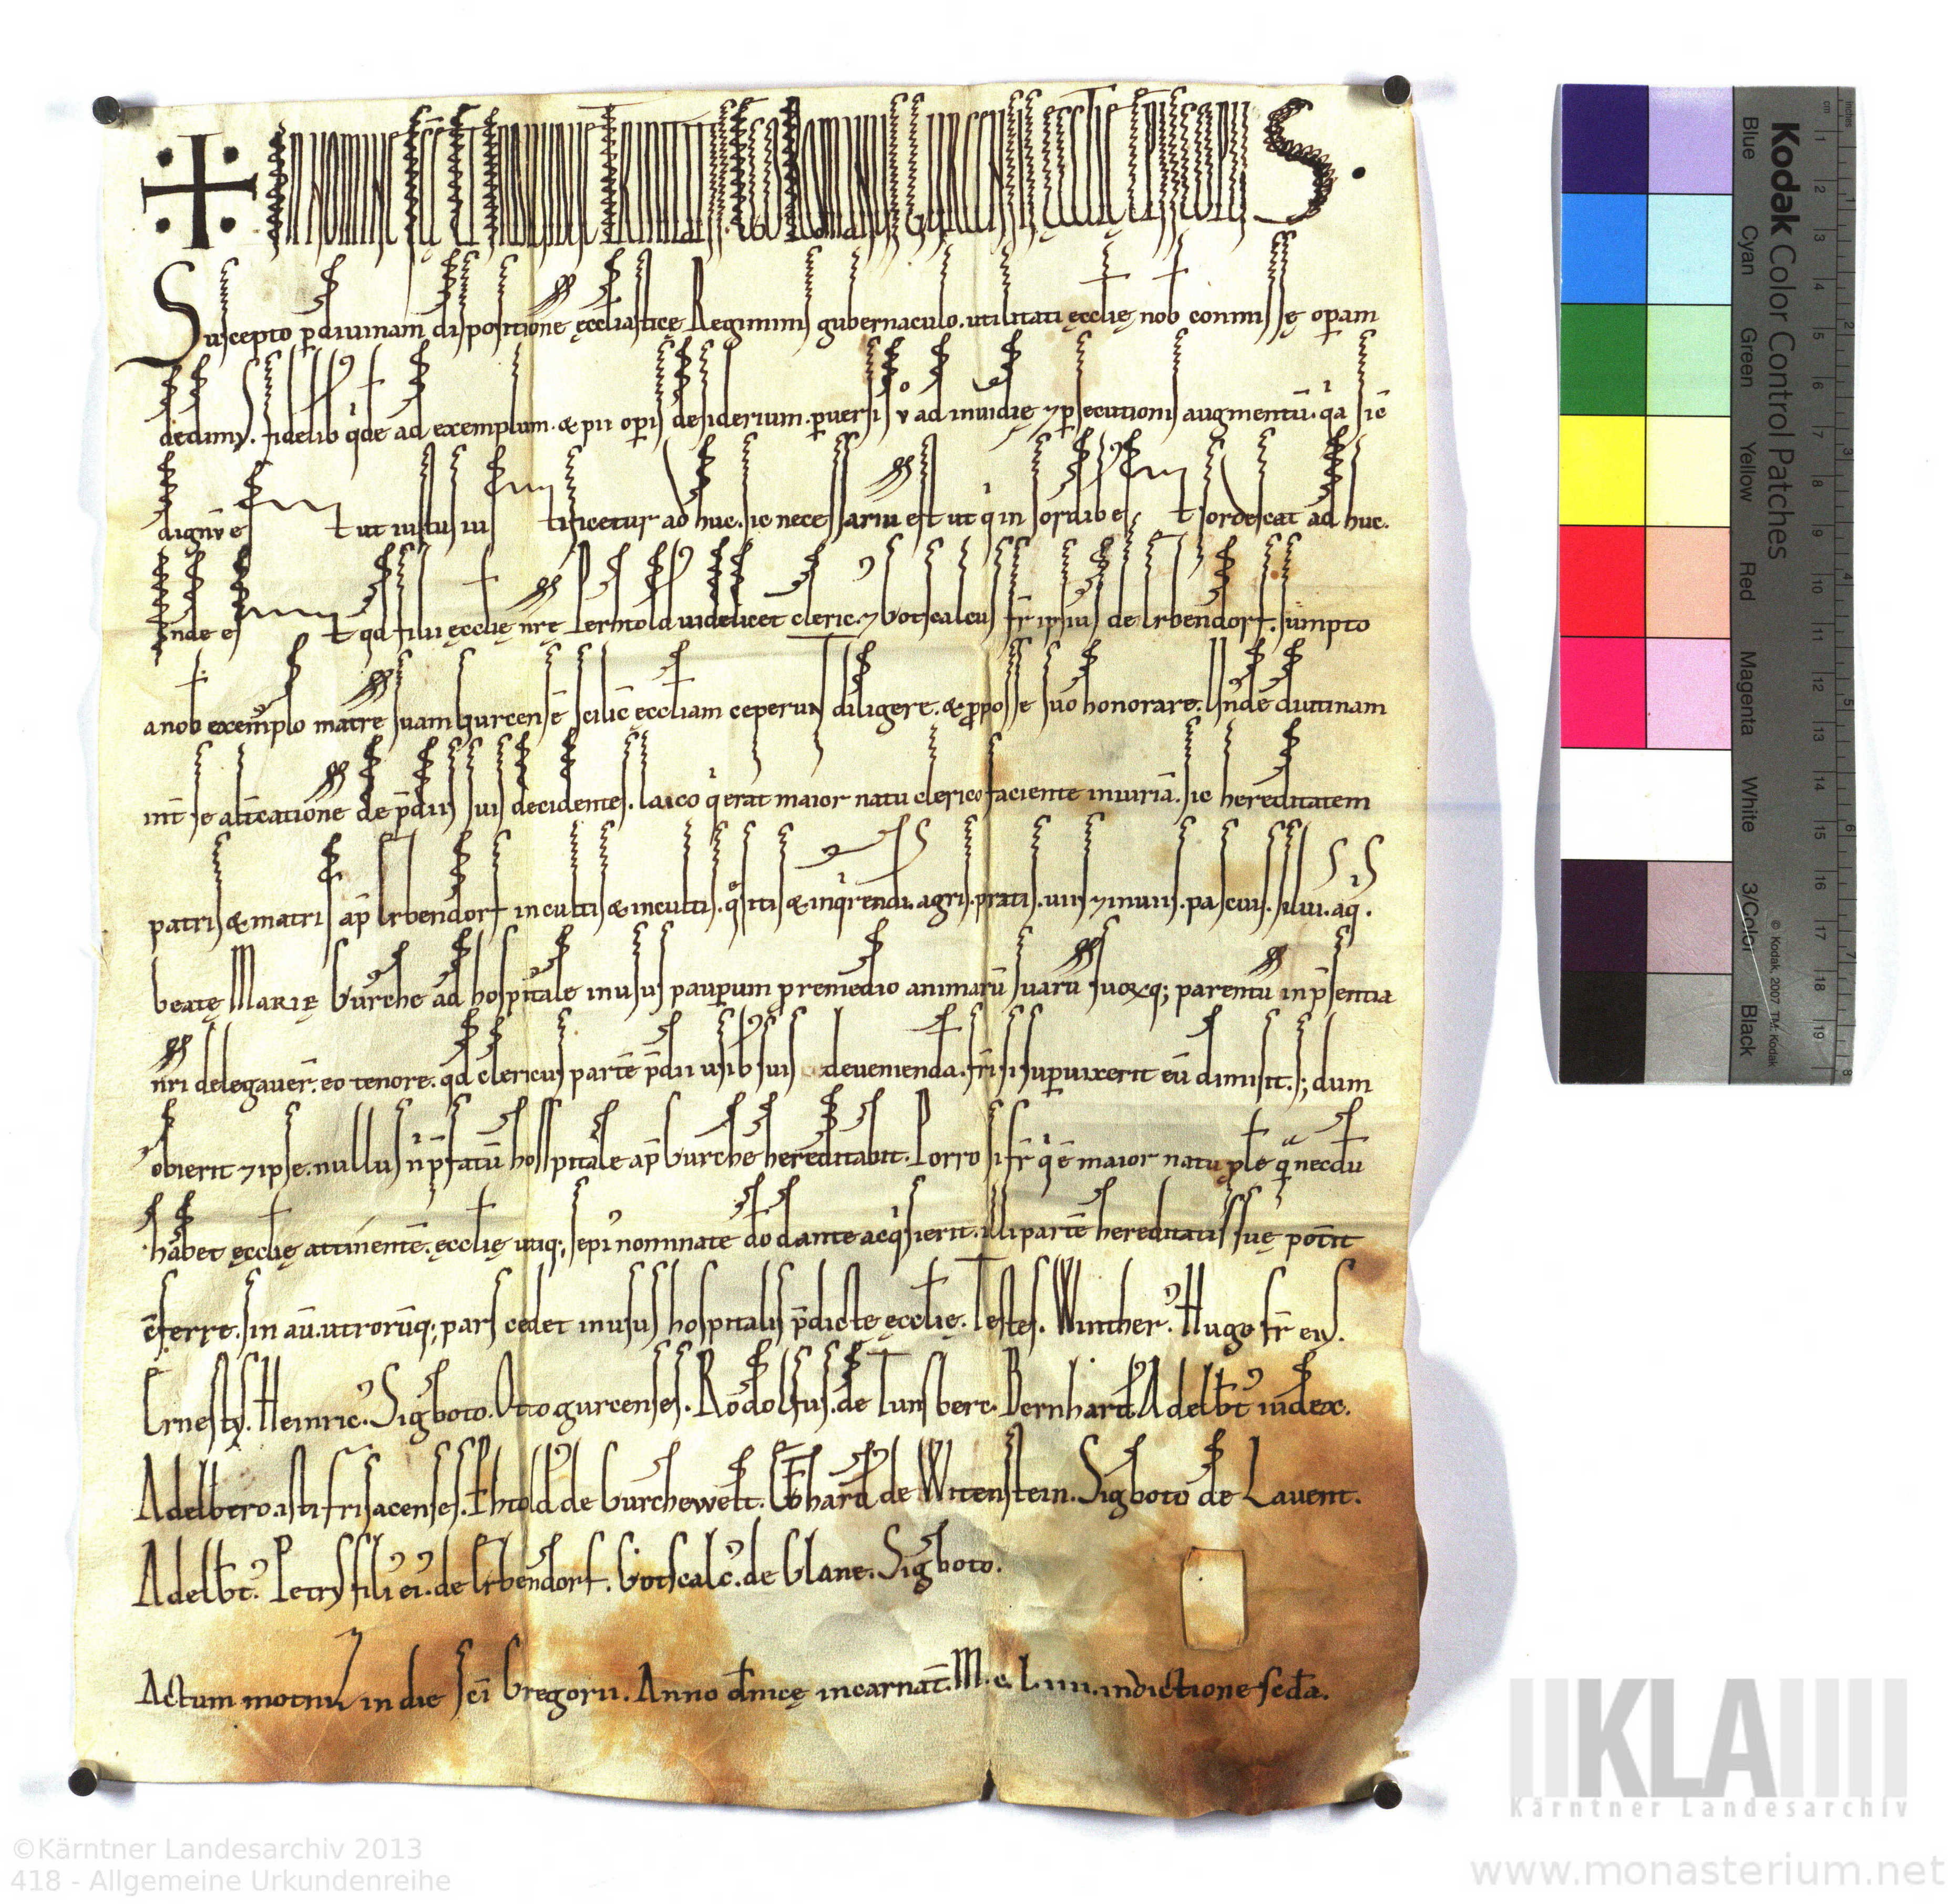 IN NOMINE SCĒ ET INDIVIDUE TRINITATIS. EGO ROMANUS GURCENSIS ECCLIĘ EPISCOPUS.
Suscepto p divinam dispositione ęcclıastice Regiminis gubernaculo. utilitati ęcclię nob commissę opam
dedimus. fidelib qde ad exemplum. & pii opis desiderium. pversis v ad invidię ⁊ psecutionis augmentū. qa sic
dignū est ut iustus iustificetur ad huc. sic necessariu est ut q in sordib est sordescat ad huc.
Inde est qd filii ęcclię nrę Perhtold videlicet cleric ⁊ Gotscalcus fr ipsius de Erbendorf. sumpto
a nob exemplo matrē suam Gurcensē scilic ęccliam ceperunt diligere. & p posse suo honorare. Unde diutinam
int se altcatione de pdiis suis decidentes. laico q erat maior natu clerico faciente iniuriā. sic hereditatem
patris & matris ap Erbendorf in cultis & incultis. qsitis & inqrendis. agris. pratis. viis ⁊ inviis. pascuis. silvis. aqis.
beatę MARIĘ Gurche ad hospitale in usus paupum p remedio animarū suarū suorq; parentū in psentia
nri delegaver. eo tenore. qd clericus partē pdii usib suis devenienda. fri si supvixerit eū dimisit. s; dum
obierit ⁊ ipse. nullus n pfatū hosspitale ap Gurche hereditabit. Porro si fr q ē maior natu plē q necdū
habet ęcclię attinentē. ęcclię utiq; sepi nominate dō dante acqsierit. illi partē hereditatis suę potit
cferre. sin aū. utrorūq; pars cedet in usus hospitalis pdictę ęcclię. Testes. Winther. Hugo fr eius.
Ernestus. Heinric. Sigboto. Otto gurcenses. Rodolfus. de Tunsberc. Bernhard. Adelbt iudex.
Adelbero. isti frisacenses. Phtold de Gurchewelt. Ebhard de Witenstein. Sigboto de Lavent.
Adelbt. Petrus filii ei. de Erbendorf. Gotscalc. de Glane. Sigboto.
Actum motniz in die sci Gregorii. Anno dnicę incarnat. M. c. L. iiii. indictione scda.
Kodak Color Control Patches
Blue Cyan Green Yellow Red Magenta White 3/Color Black
© Kodak, 2007 TM: Kodak
cm 1 2 3 4 5 6 7 8 9 10 11 12 13 14 15 16 17 18 19
inches 1 2 3 4 5 6 7 8
KLA
Kärntner Landesarchiv
©Kärntner Landesarchiv 2013
418 - Allgemeine Urkundenreihe
www.monasterium.net